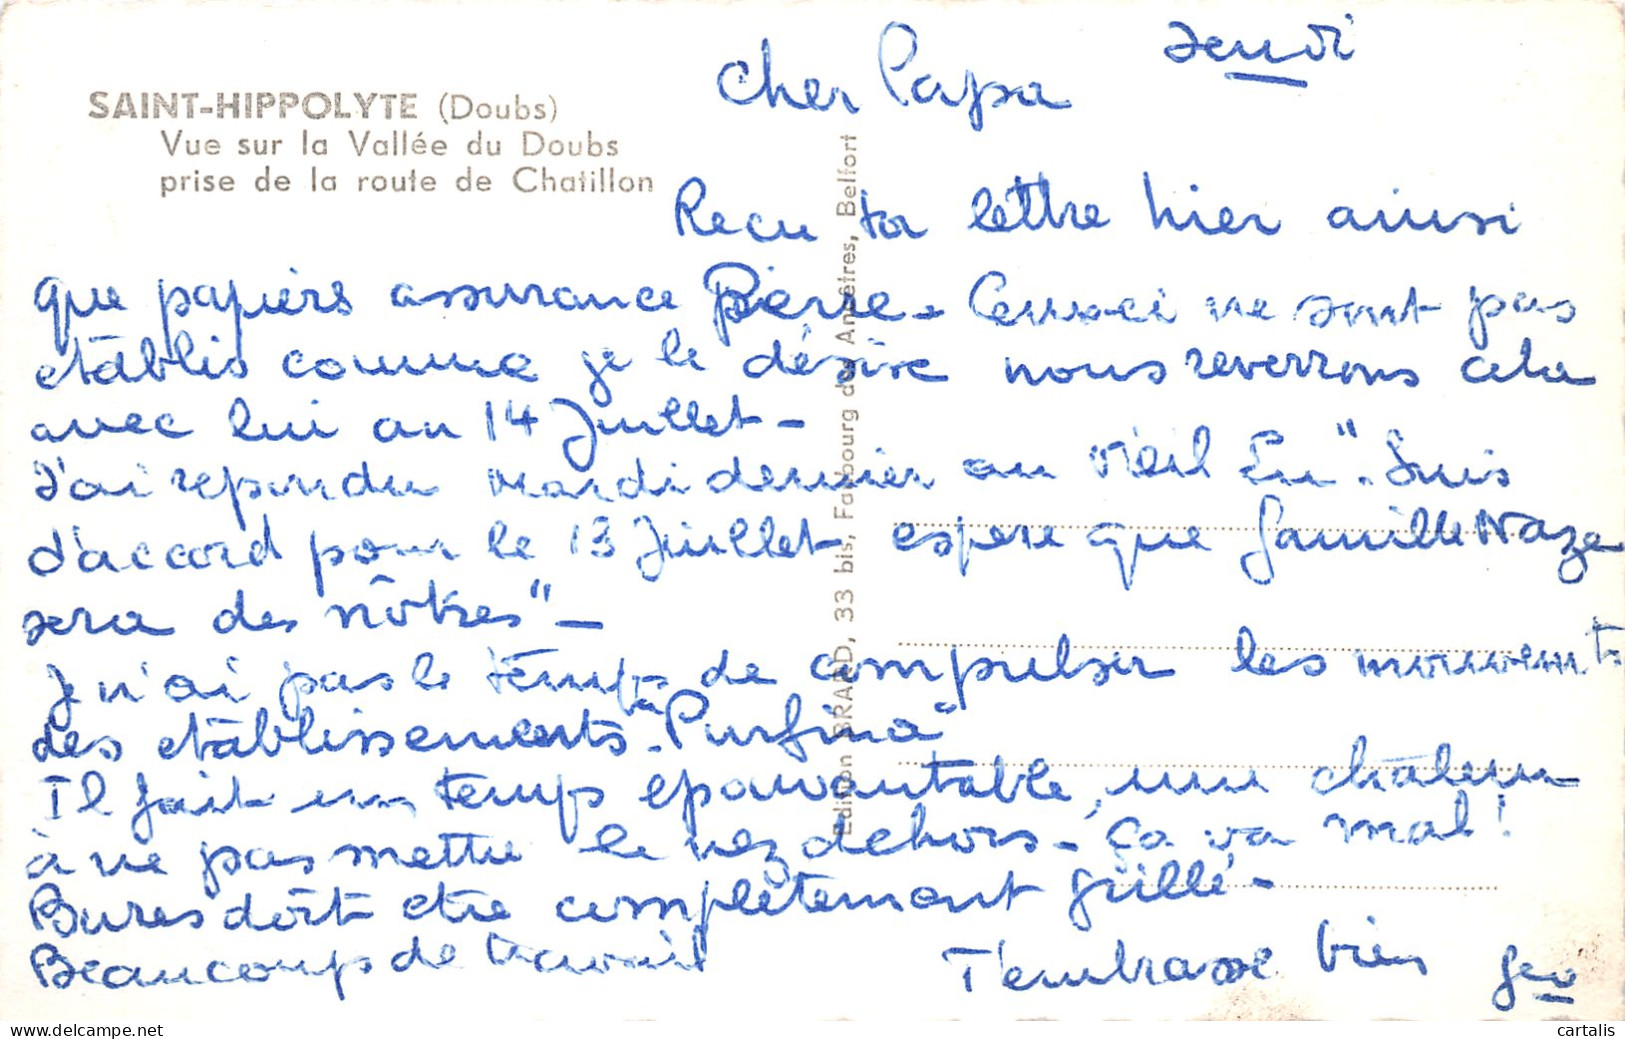 Jeudi
Cher Papa
SAINT-HIPPOLYTE (Doubs)
Vue sur la Vallée du Doubs
prise de la route de Chatillon
Recu ta lettre hier ainsi
que papiers assurance Pierre - Ceux-ci ne sont pas
etablis comme je le désire nous reverrons cela
avec lui au 14 Juillet -
J'ai repondu mardi dernier au vieil ". Suis
d'accord pour le 13 Juillet espere que famille Naze
sera des nôtres" -
Je n'ai pas le temps de compulser les mouvements
des etablissements "Purfina"
Il fait un temps epouvantable, une chaleur
à ne pas mettre le nez dehors - Ça va mal !
Bures doit etre complètement grillé -
Beaucoup de travail
T'embrasse bien Geo
Edition BRAUD, 33 bis, Faubourg de Ancêtres, Belfort
cartalis